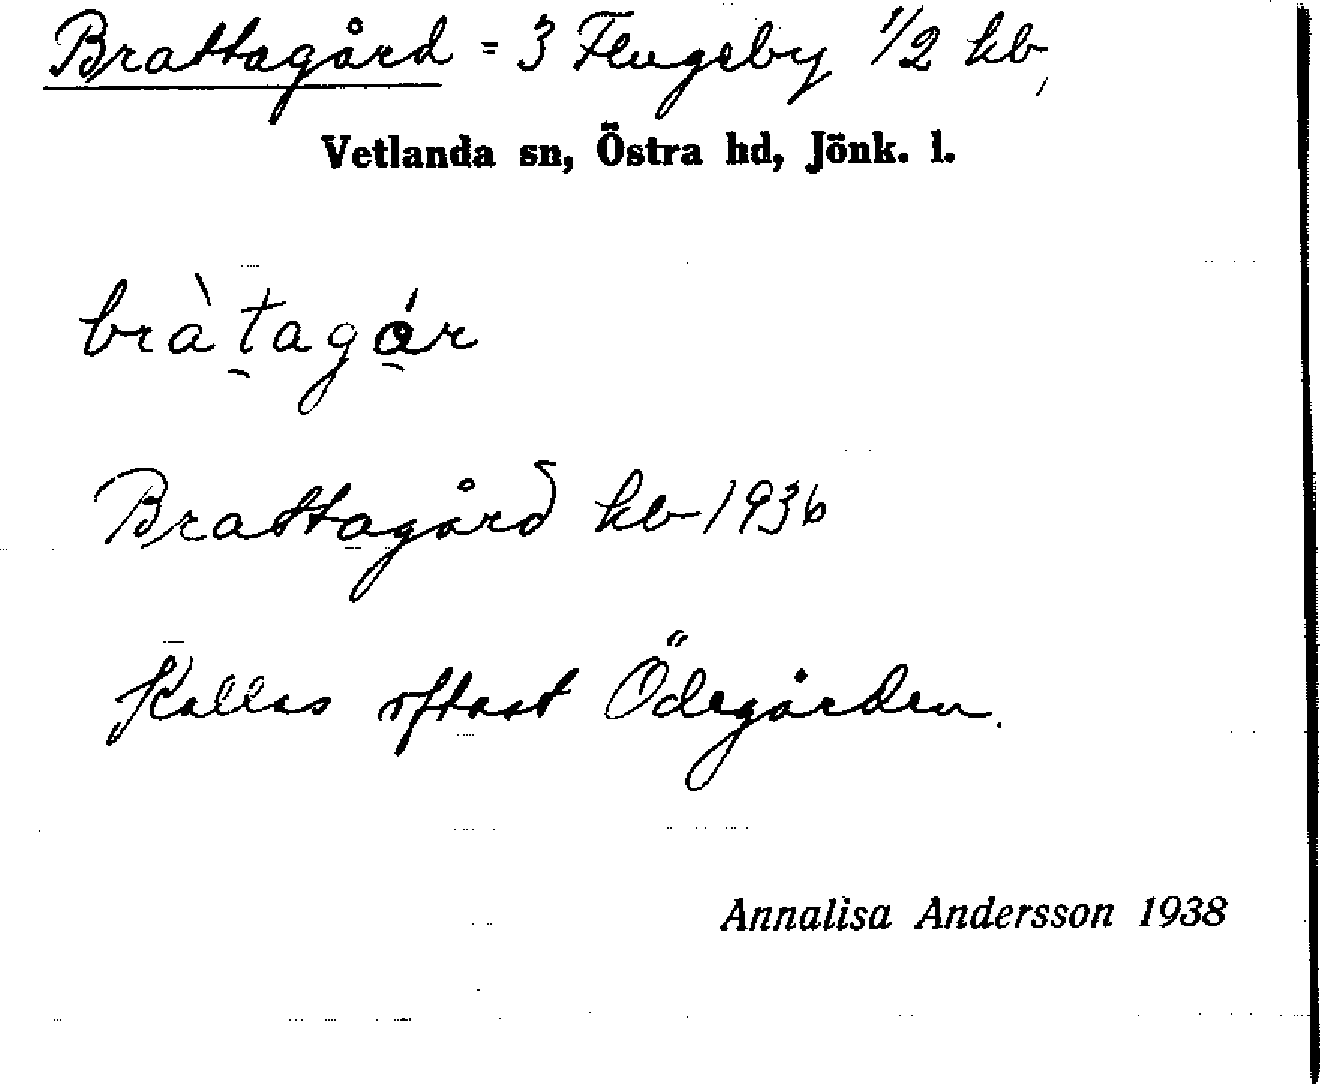 Brattagård = 3 Flugeby 1/2 hb,
Vetlanda sn, Östra hd, Jönk. l.
bràt̯agǻr
Brattagård hb 1936
Kallas oftast Ödegården.
Annalisa Andersson 1938